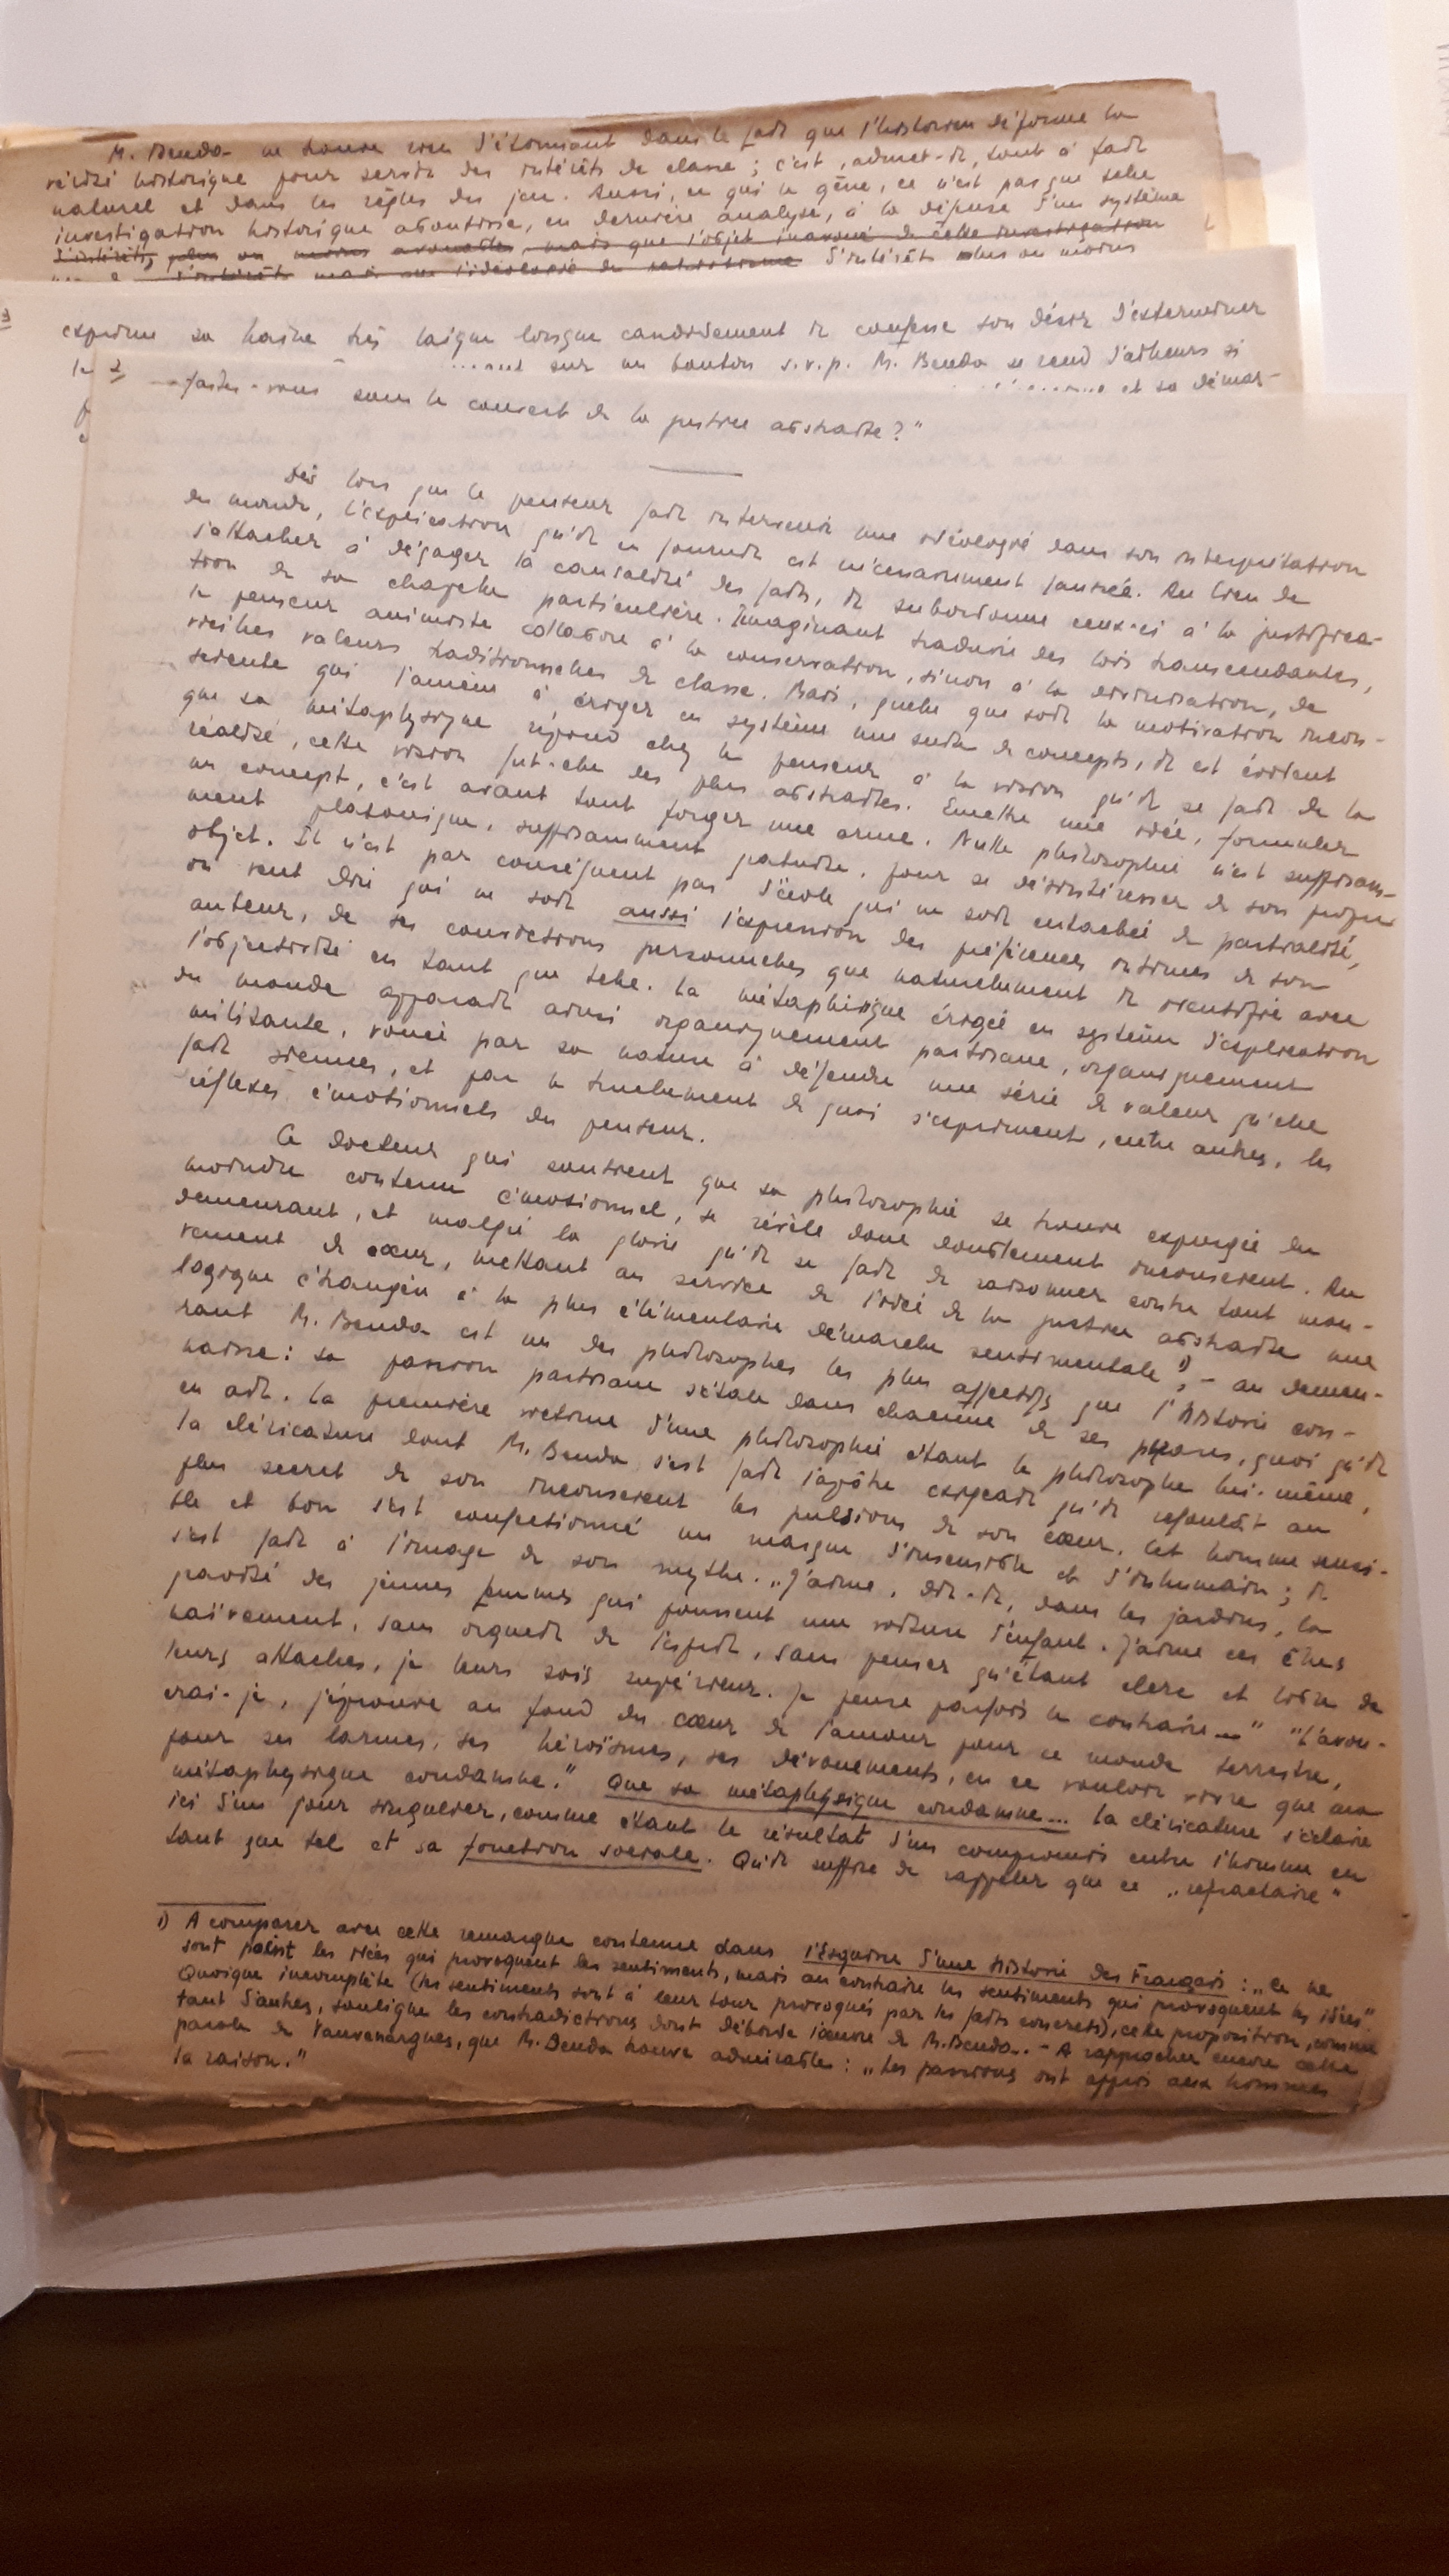 M. Benda ne trouve rien d'étonnant dans le fait que l'historien déforme la
vérité historique pour servir des intérêts de classe ; c'est, admet-il, tout à fait
naturel et dans les règles du jeu. Aussi, ce qui le gêne, ce n'est pas que telle
investigation historique aboutisse, en dernière analyse, à la défense d'un système
d'intérêts, plus ou moins avouables, mais que l'objet inavoué de cette investigation
d'intérêts mais que l'idéologie du d'intérêts plus ou moins
exprime sa haine très laïque lorsque candidement il confesse son désir d'exterminer
sur un bouton s.v.p. M. Benda se rend d'ailleurs si
et sa démar-
faites-vous sous le couvert de la justice abstraite ?"
Dès lors que le penseur fait intervenir une idéologie dans son interprétation
du monde, l'explication qu'il en fournit est nécessairement faussée. Au lieu de
s'attacher à dégager la causalité des faits, il subordonne ceux-ci à la justifica-
tion de sa chapelle particulière. Imaginant traduire des lois transcendantes,
le penseur animiste collabore à la conservation, sinon à la divinisation, de
vieilles valeurs traditionnelles de classe. Mais, quelle que soit la motivation incon-
sciente qui l'amène à ériger en système une suite de concepts, il est évident
que sa métaphysique répond chez le penseur à la vision qu'il se fait de la
réalité, cette vision fut-elle des plus abstraites. Emettre une idée, formuler
un concept, c'est avant tout forger une arme. Nulle philosophie n'est suffisam-
ment platonique, suffisamment gratuite, pour se désintéresser de son propre
objet. Il n'est par conséquent pas d'école qui ne soit entachée de partialité,
on veut dire qui ne soit aussi l'expression des préférences intimes de son
auteur, de ses convictions personnelles que naturellement il identifie avec
l'objectivité en tant que telle. La métaphisique érigée en système d'explication
du monde apparaît ainsi organiquement partisane, organiquement
militante, vouée par sa nature à défendre une série de valeur qu'elle
fait siennes, et par le truchement de quoi s'expriment, entre autres, les
réflexes émotionnels du penseur.
Ce docteur qui soutient que sa philosophie se trouve expurgée du
moindre contenu émotionnel, se révèle donc doublement inconscient. Au
demeurant, et malgré la gloire qu'il se fait de raisonner contre tout mou-
vement de cœur, mettant au service de l'idée de la justice abstraite une
logique étrangère à la plus élémentaire démarche sentimentale 1), – au demeu-
rant M. Benda est un des philosophes les plus affectifs que l'histoire con-
naisse : sa passion partisane s'étale dans chacune de ses phrases, quoi qu'il
en ait. La première victime d'une philosophie étant le philosophe lui-même,
la cléricature dont M. Benda s'est fait l'apôtre exigeait qu'il refoulât au
plus secret de son inconscient les pulsions de son cœur. Cet homme sensi-
ble et bon s'est confectionné un masque d'insensible et d'inhumain ; il
s'est fait à l'image de son mythe. „J'aime, dit-il, dans les jardins, la
gravité des jeunes femmes qui poussent une voiture d'enfant. J'aime ces êtres
naïvement, sans orgueil de l'esprit, sans penser qu'étant clerc et libre de
leurs attaches, je leurs sois supérieur. Je pense parfois le contraire..." "L'avou-
erai-je, j'éprouve au fond du cœur de l'amour pour ce monde terrestre,
pour ses larmes, ses héroïsmes, ses dévouements, en ce vouloir vivre que ma
métaphysique condamne." Que sa métaphysique condamne... La cléricature s'éclaire
ici d'un jour singulier, comme étant le résultat d'un compromis entre l'homme en
tant que tel et sa fonction sociale. Qu'il suffise de rappeler que ce „réfractaire"
1) A comparer avec cette remarque contenue dans l'Esquisse d'une Histoire des Français : „Ce ne
sont point les idées qui provoquent les sentiments, mais au contraire les sentiments qui provoquent les idées"
Quoique incomplète (les sentiments sont à leur tour provoqués par les faits concrets), cette proposition, comme
tant d'autres, souligne les contradictions dont déborde l'œuvre de M. Benda. – A rapprocher encore cette
parole de Vauvenargues, que M. Benda trouve admirable : „Les passions ont appris aux hommes
la raison."